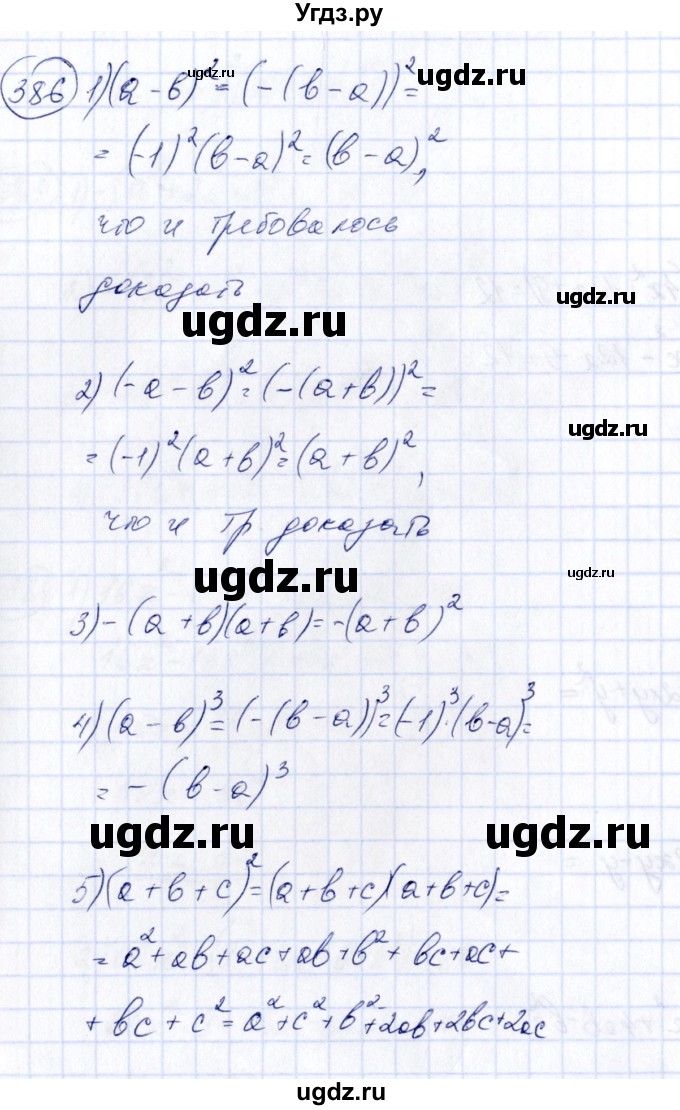 Угдз.ру
386 1) (a - b)² = (-(b - a))² =
= (-1)² (b - a)² = (b - a)²,
что и требовалось
доказать
2) (-a - b)² = (-(a + b))² =
= (-1)² (a + b)² = (a + b)²,
что и тр доказать
3) -(a + b)(a + b) = -(a + b)²
4) (a - b)³ = (-(b - a))³ = (-1)³ · (b - a)³ =
= -(b - a)³
5) (a + b + c)² = (a + b + c)(a + b + c) =
= a² + ab + ac + ab + b² + bc + ac +
+ bc + c² = a² + c² + b² + 2ab + 2bc + 2ac
ugdz.ru
ugdz.ru
ugdz.ru
ugdz.ru
ugdz.ru
ugdz.ru
ugdz.ru
ugdz.ru
ugdz.ru
ugdz.ru